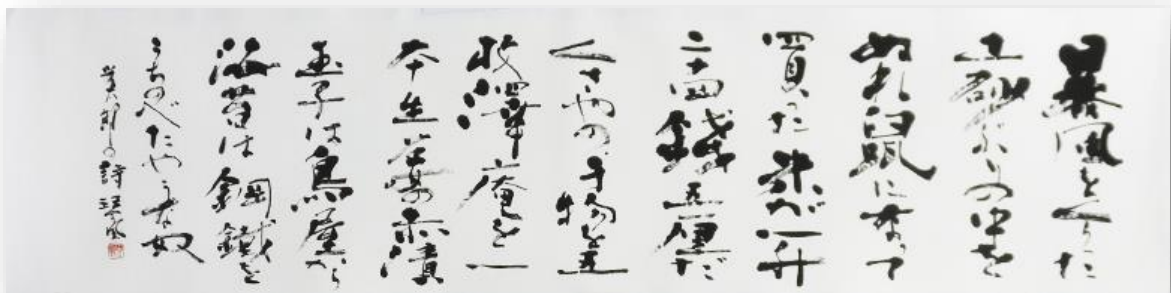 暴風をくらった
土砂ぶりの中を
ぬれ鼠になって
買った米が一升
二十四錢五厘だ
くさやの干物を五
枚澤庵を一
本生姜の赤漬
玉子は鳥屋から
海苔は鋼鐵を
うちのべたやうな奴
光太郎の詩